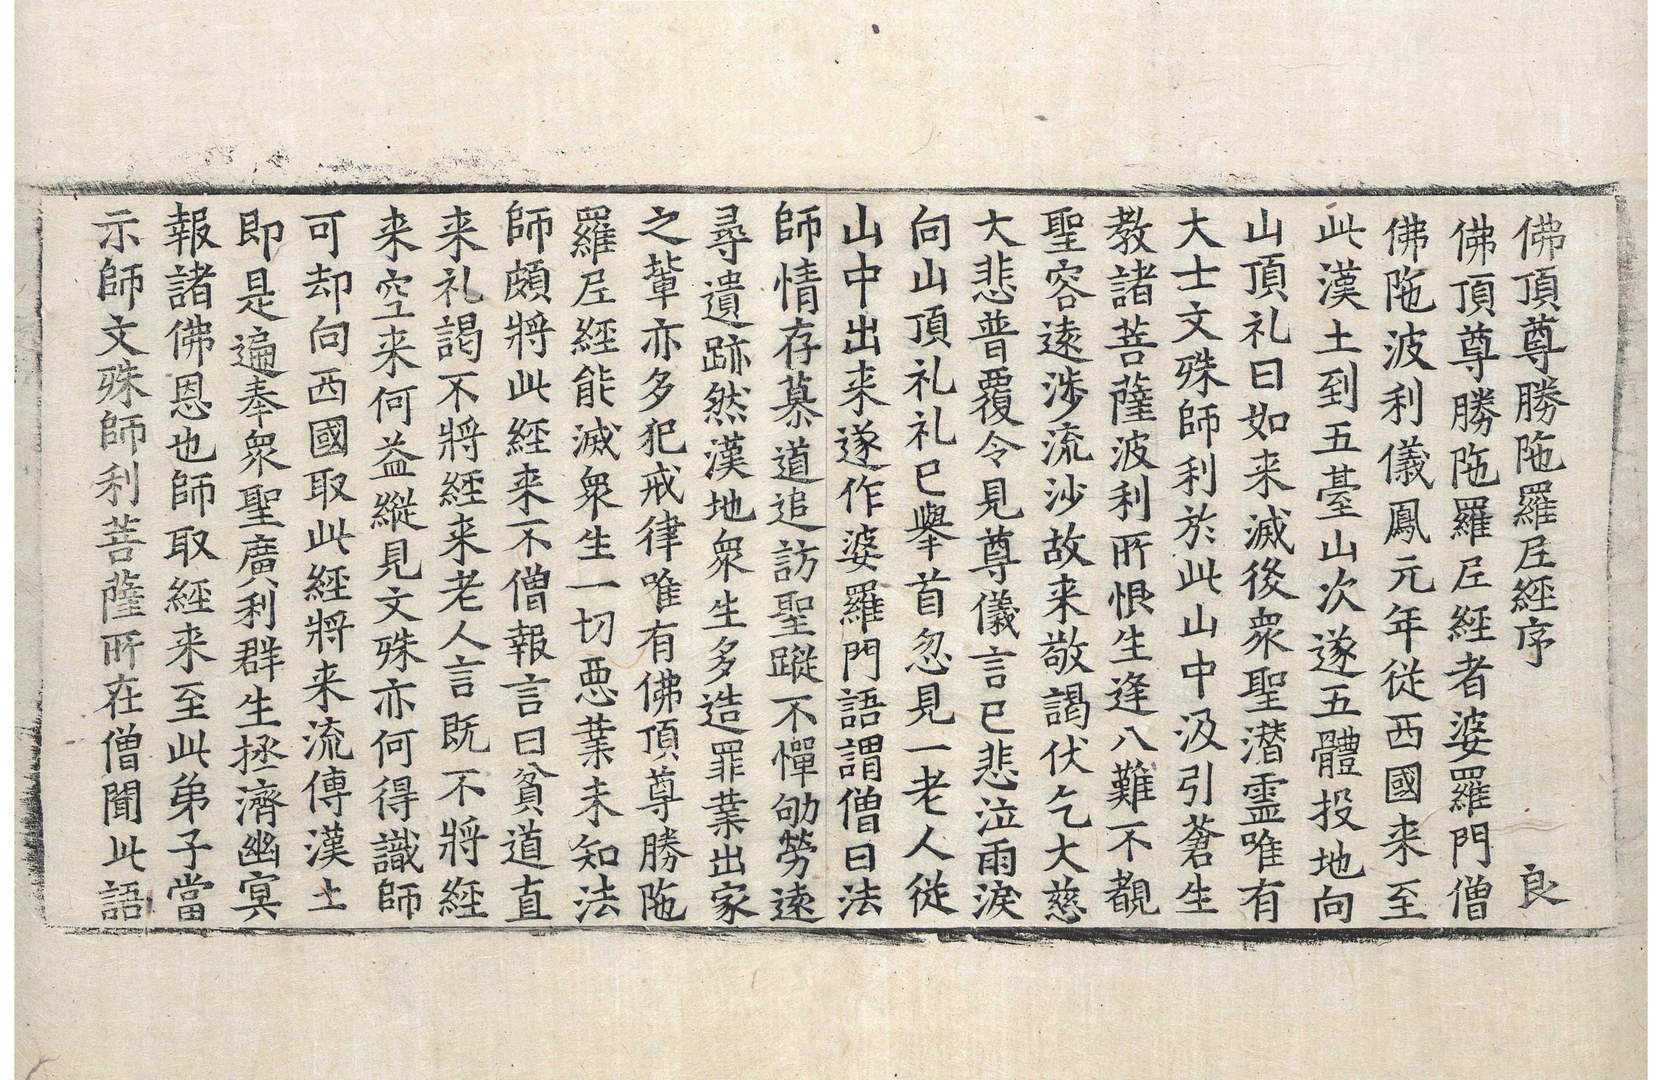 佛頂尊勝陁羅尼經序　良
佛頂尊勝陁羅尼經者婆羅門僧
佛陁波利儀鳳元年從西國来至
此漢土到五臺山次遂五體投地向
山頂礼曰如来滅後衆聖潜霊唯有
大士文殊師利於此山中汲引蒼生
教諸菩薩波利所恨生逢八難不覩
聖容逺涉流沙故来敬謁伏乞大慈
大悲普覆令見尊儀言已悲泣雨淚
向山頂礼礼已舉首忽見一老人從
山中出来遂作婆羅門語謂僧曰法
師情存慕道追訪聖蹤不憚劬勞逺
尋遺跡然漢地衆生多造罪業出家
之輩亦多犯戒律唯有佛頂尊勝陁
羅尼經能滅衆生一切悪業未知法
師頗將此經来不僧報言曰貧道直
来礼謁不將經来老人言既不將經
来空来何益縱見文殊亦何得識師
可却向西國取此經將来流傳漢土
即是遍奉衆聖廣利群生拯濟幽冥
報諸佛恩也師取經来至此弟子當
示師文殊師利菩薩所在僧聞此語